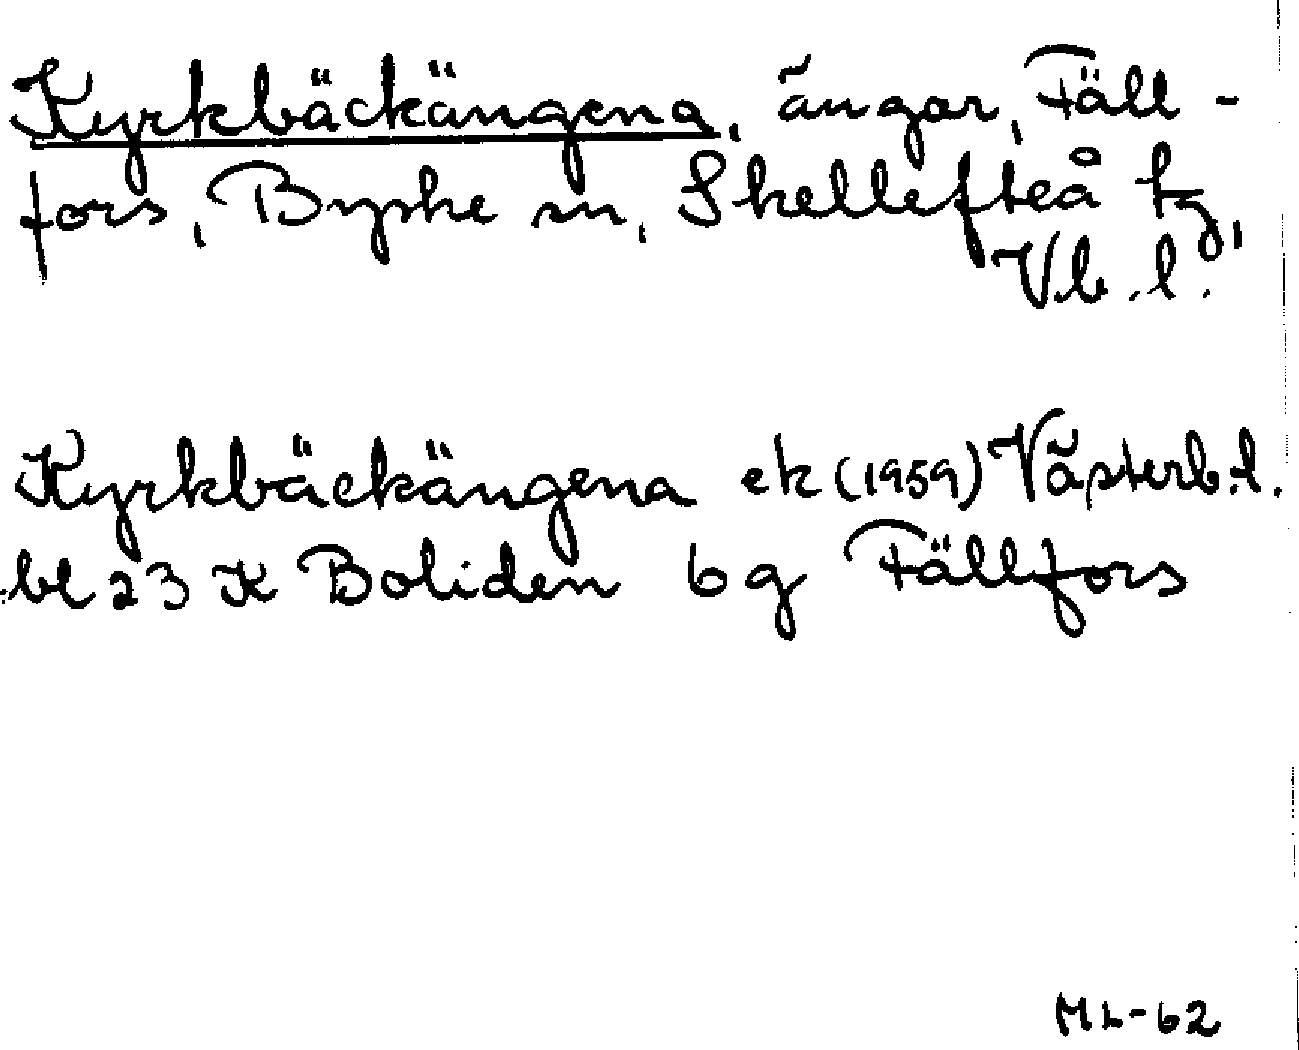 Kyrkbäckängena, ängar, Fäll-
fors, Byske sn, Skellefteå tg,
Vb.l.
Kyrkbäckängena ek (1959) Västerb.l.
bl 23 K Boliden 6 g Fällfors
ML-62